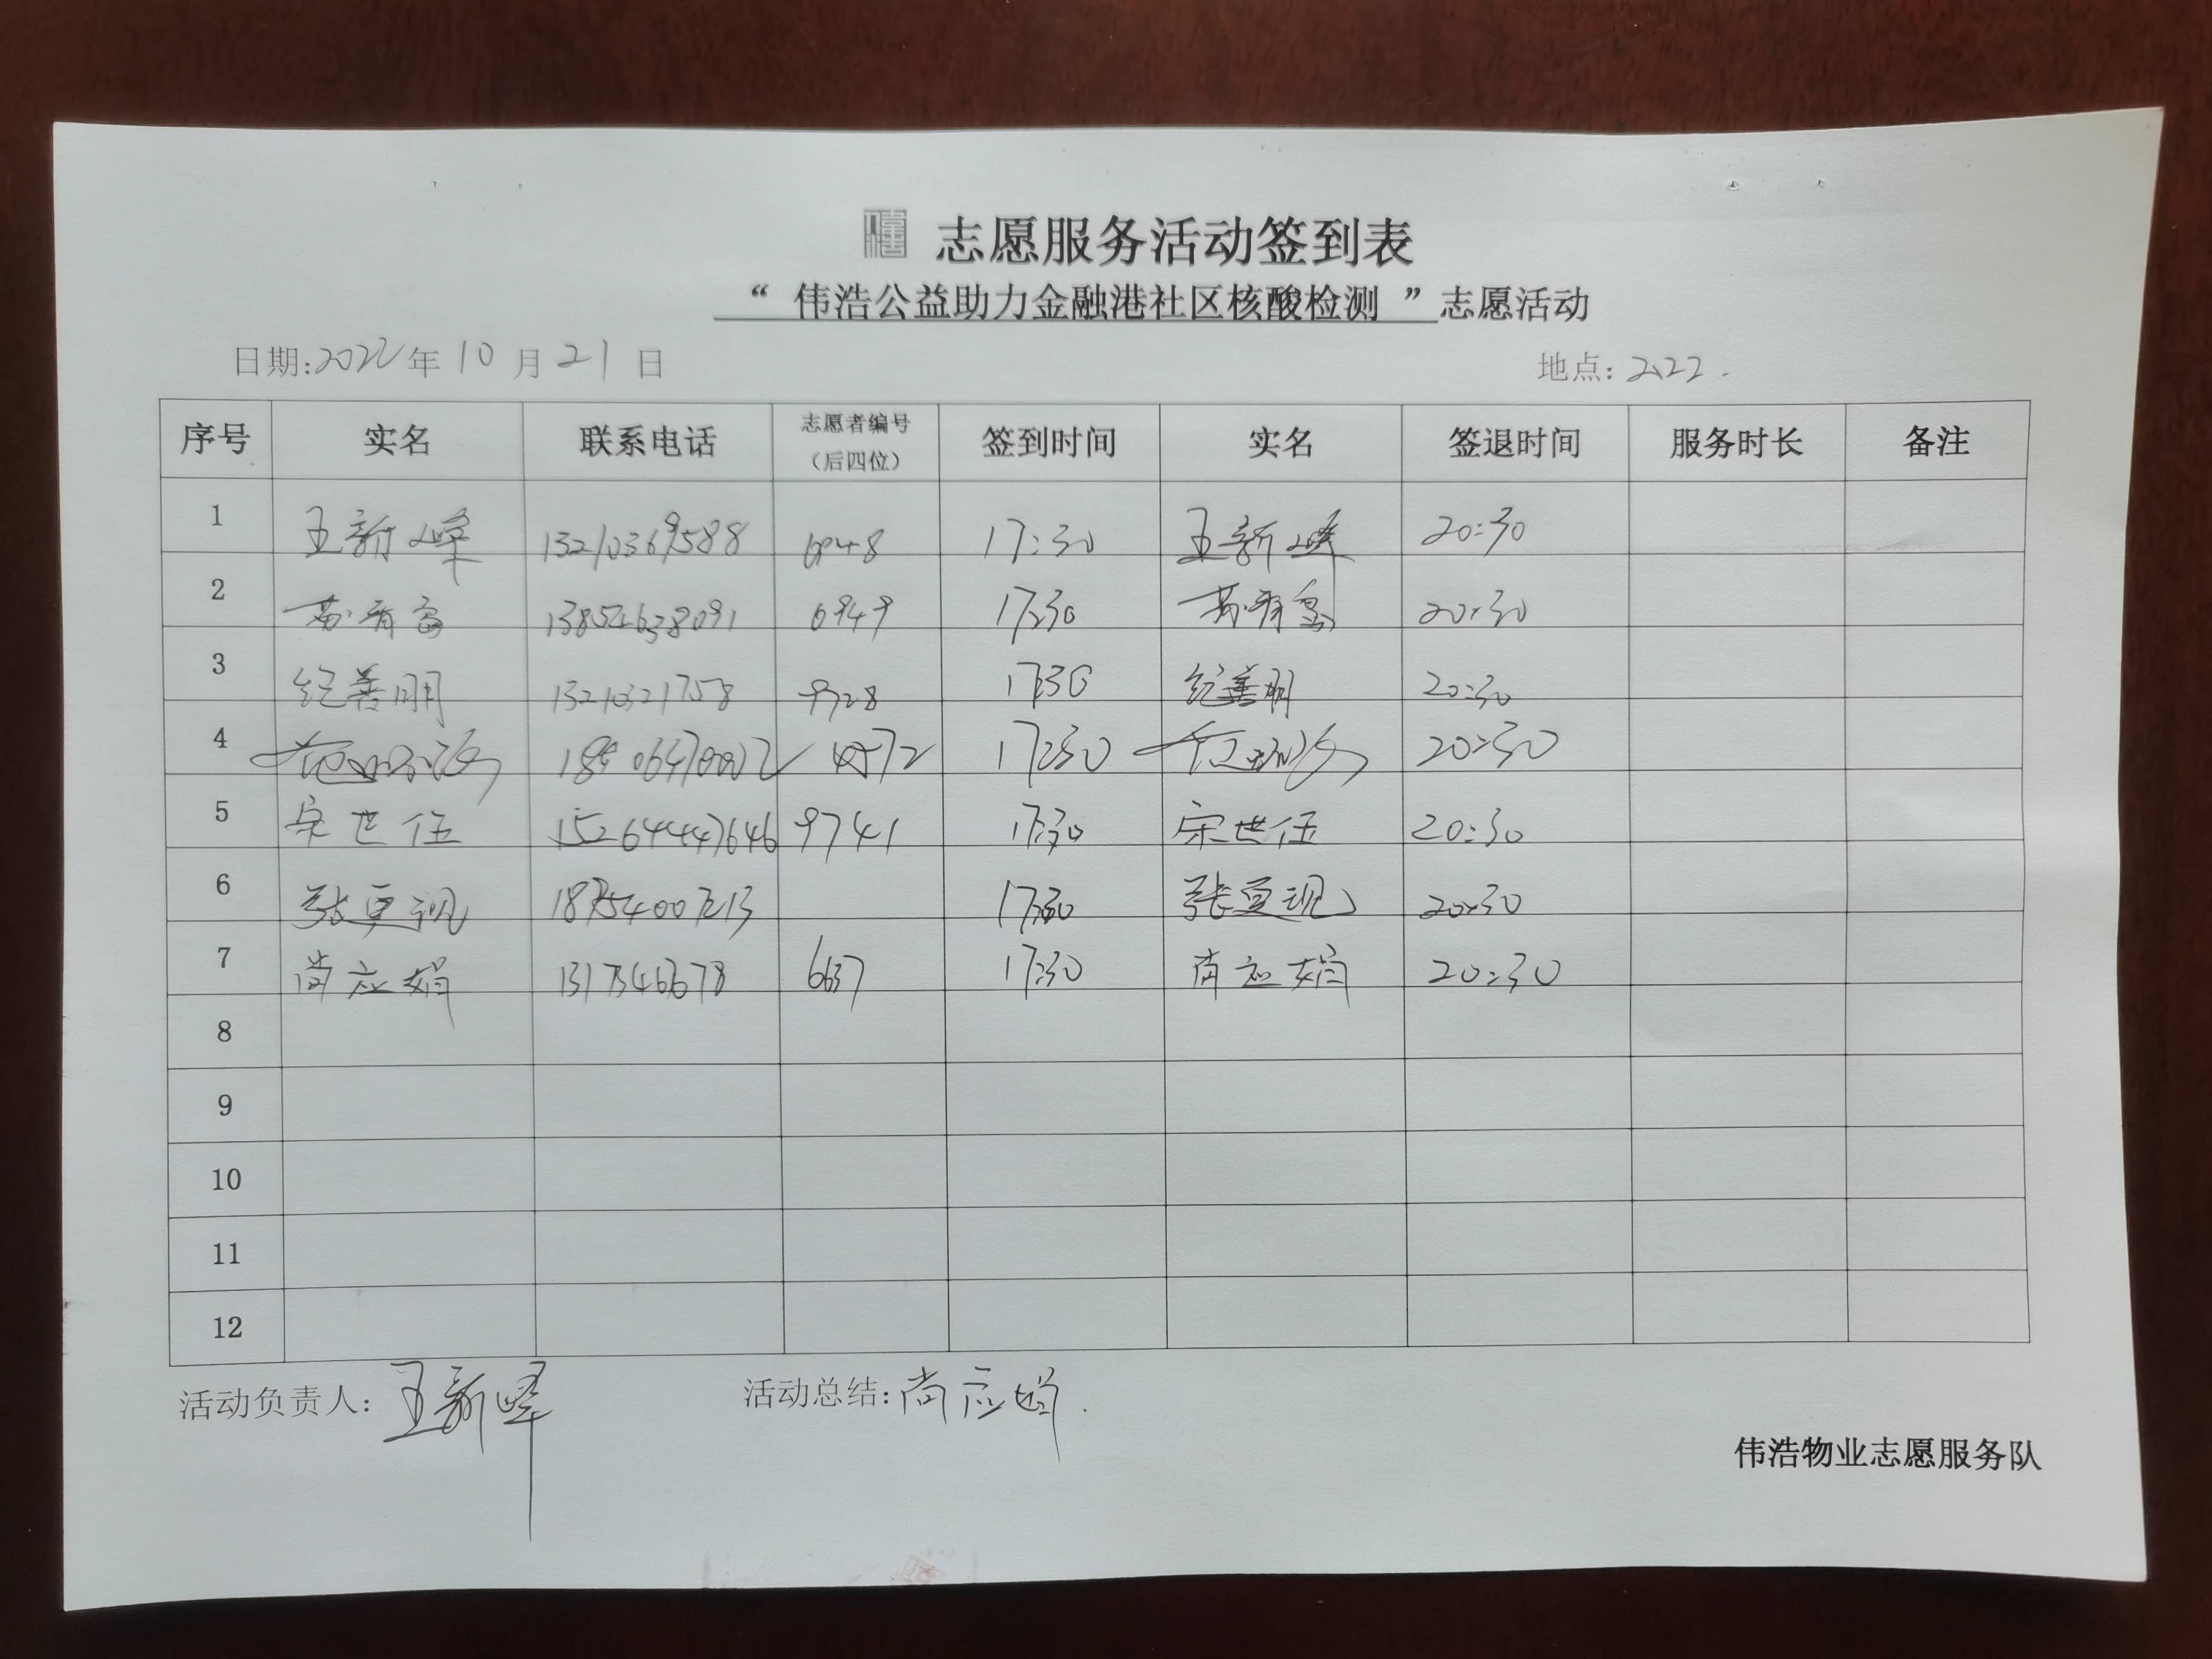 志愿服务活动签到表
“ 伟浩公益助力金融港社区核酸检测 ”志愿活动
日期:2022年10月21日 地点: 2222.
序号 实名 联系电话 志愿者编号（后四位） 签到时间 实名 签退时间 服务时长 备注
1 王新峰 13210369588 17:30 王新峰 20:30
2 13854638091 6949 17:30 20:30
3 纪善明 13210321758 9728 17:30 纪善明 20:30
4 17:30 20:30
5 宋世伍 15264447646 9741 17:30 宋世伍 20:30
6 17:30 20:30
7 尚应娟 6637 17:30 尚应娟 20:30
8
9
10
11
12
活动负责人: 王新峰 活动总结: 尚应娟.
伟浩物业志愿服务队